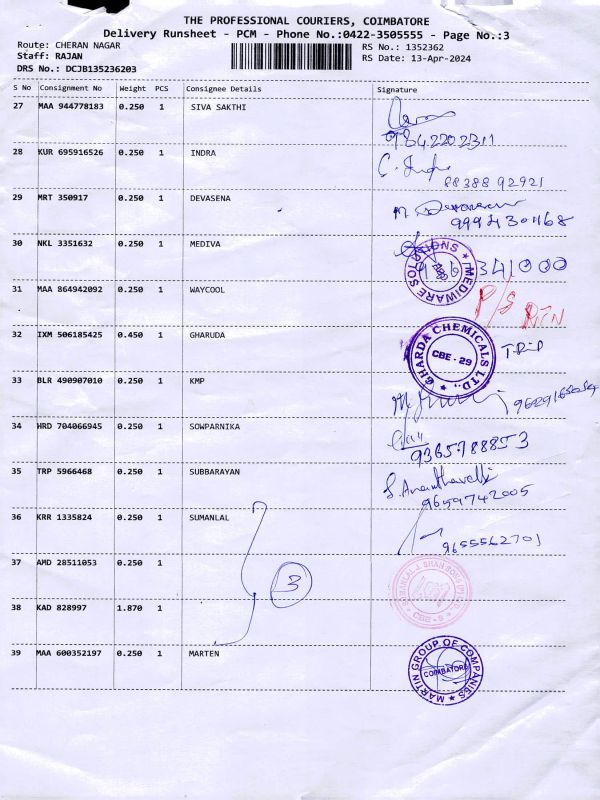 THE PROFESSIONAL COURIERS, COIMBATORE
Delivery Runsheet - PCM - Phone No.:0422-3505555 - Page No.:3
Route: CHERAN NAGAR
RS No.: 1352362
Staff: RAJAN
RS Date: 13-Apr-2024
DRS No.: DCJB135236203
S No Consignment No Weight PCS Consignee Details Signature
27 MAA 944778183 0.250 1 SIVA SAKTHI
9842202311
28 KUR 695916526 0.250 1 INDRA C. Indra
88388 92921
29 MRT 350917 0.250 1 DEVASENA M. Devasena
9994301168
30 NKL 3351632 0.250 1 MEDIVA
341000
MEDIWARE SOLUTIONS
31 MAA 864942092 0.250 1 WAYCOOL P/S
RTN
32 IXM 506185425 0.450 1 GHARUDA
GHARDA CHEMICALS LTD.,
CBE - 29
33 BLR 490907010 0.250 1 KMP
34 HRD 704066945 0.250 1 SOWPARNIKA
9365788853
35 TRP 5966468 0.250 1 SUBBARAYAN S. Ananthavalli
9659742005
36 KRR 1335824 0.250 1 SUMANLAL
9655562701
37 AMD 28511053 0.250 1
3
SUMANLAL J. SHAH SONS (P) LTD.
CBE - 9
38 KAD 828997 1.870 1
39 MAA 600352197 0.250 1 MARTEN
MARTIN GROUP OF COMPANIES
COIMBATORE